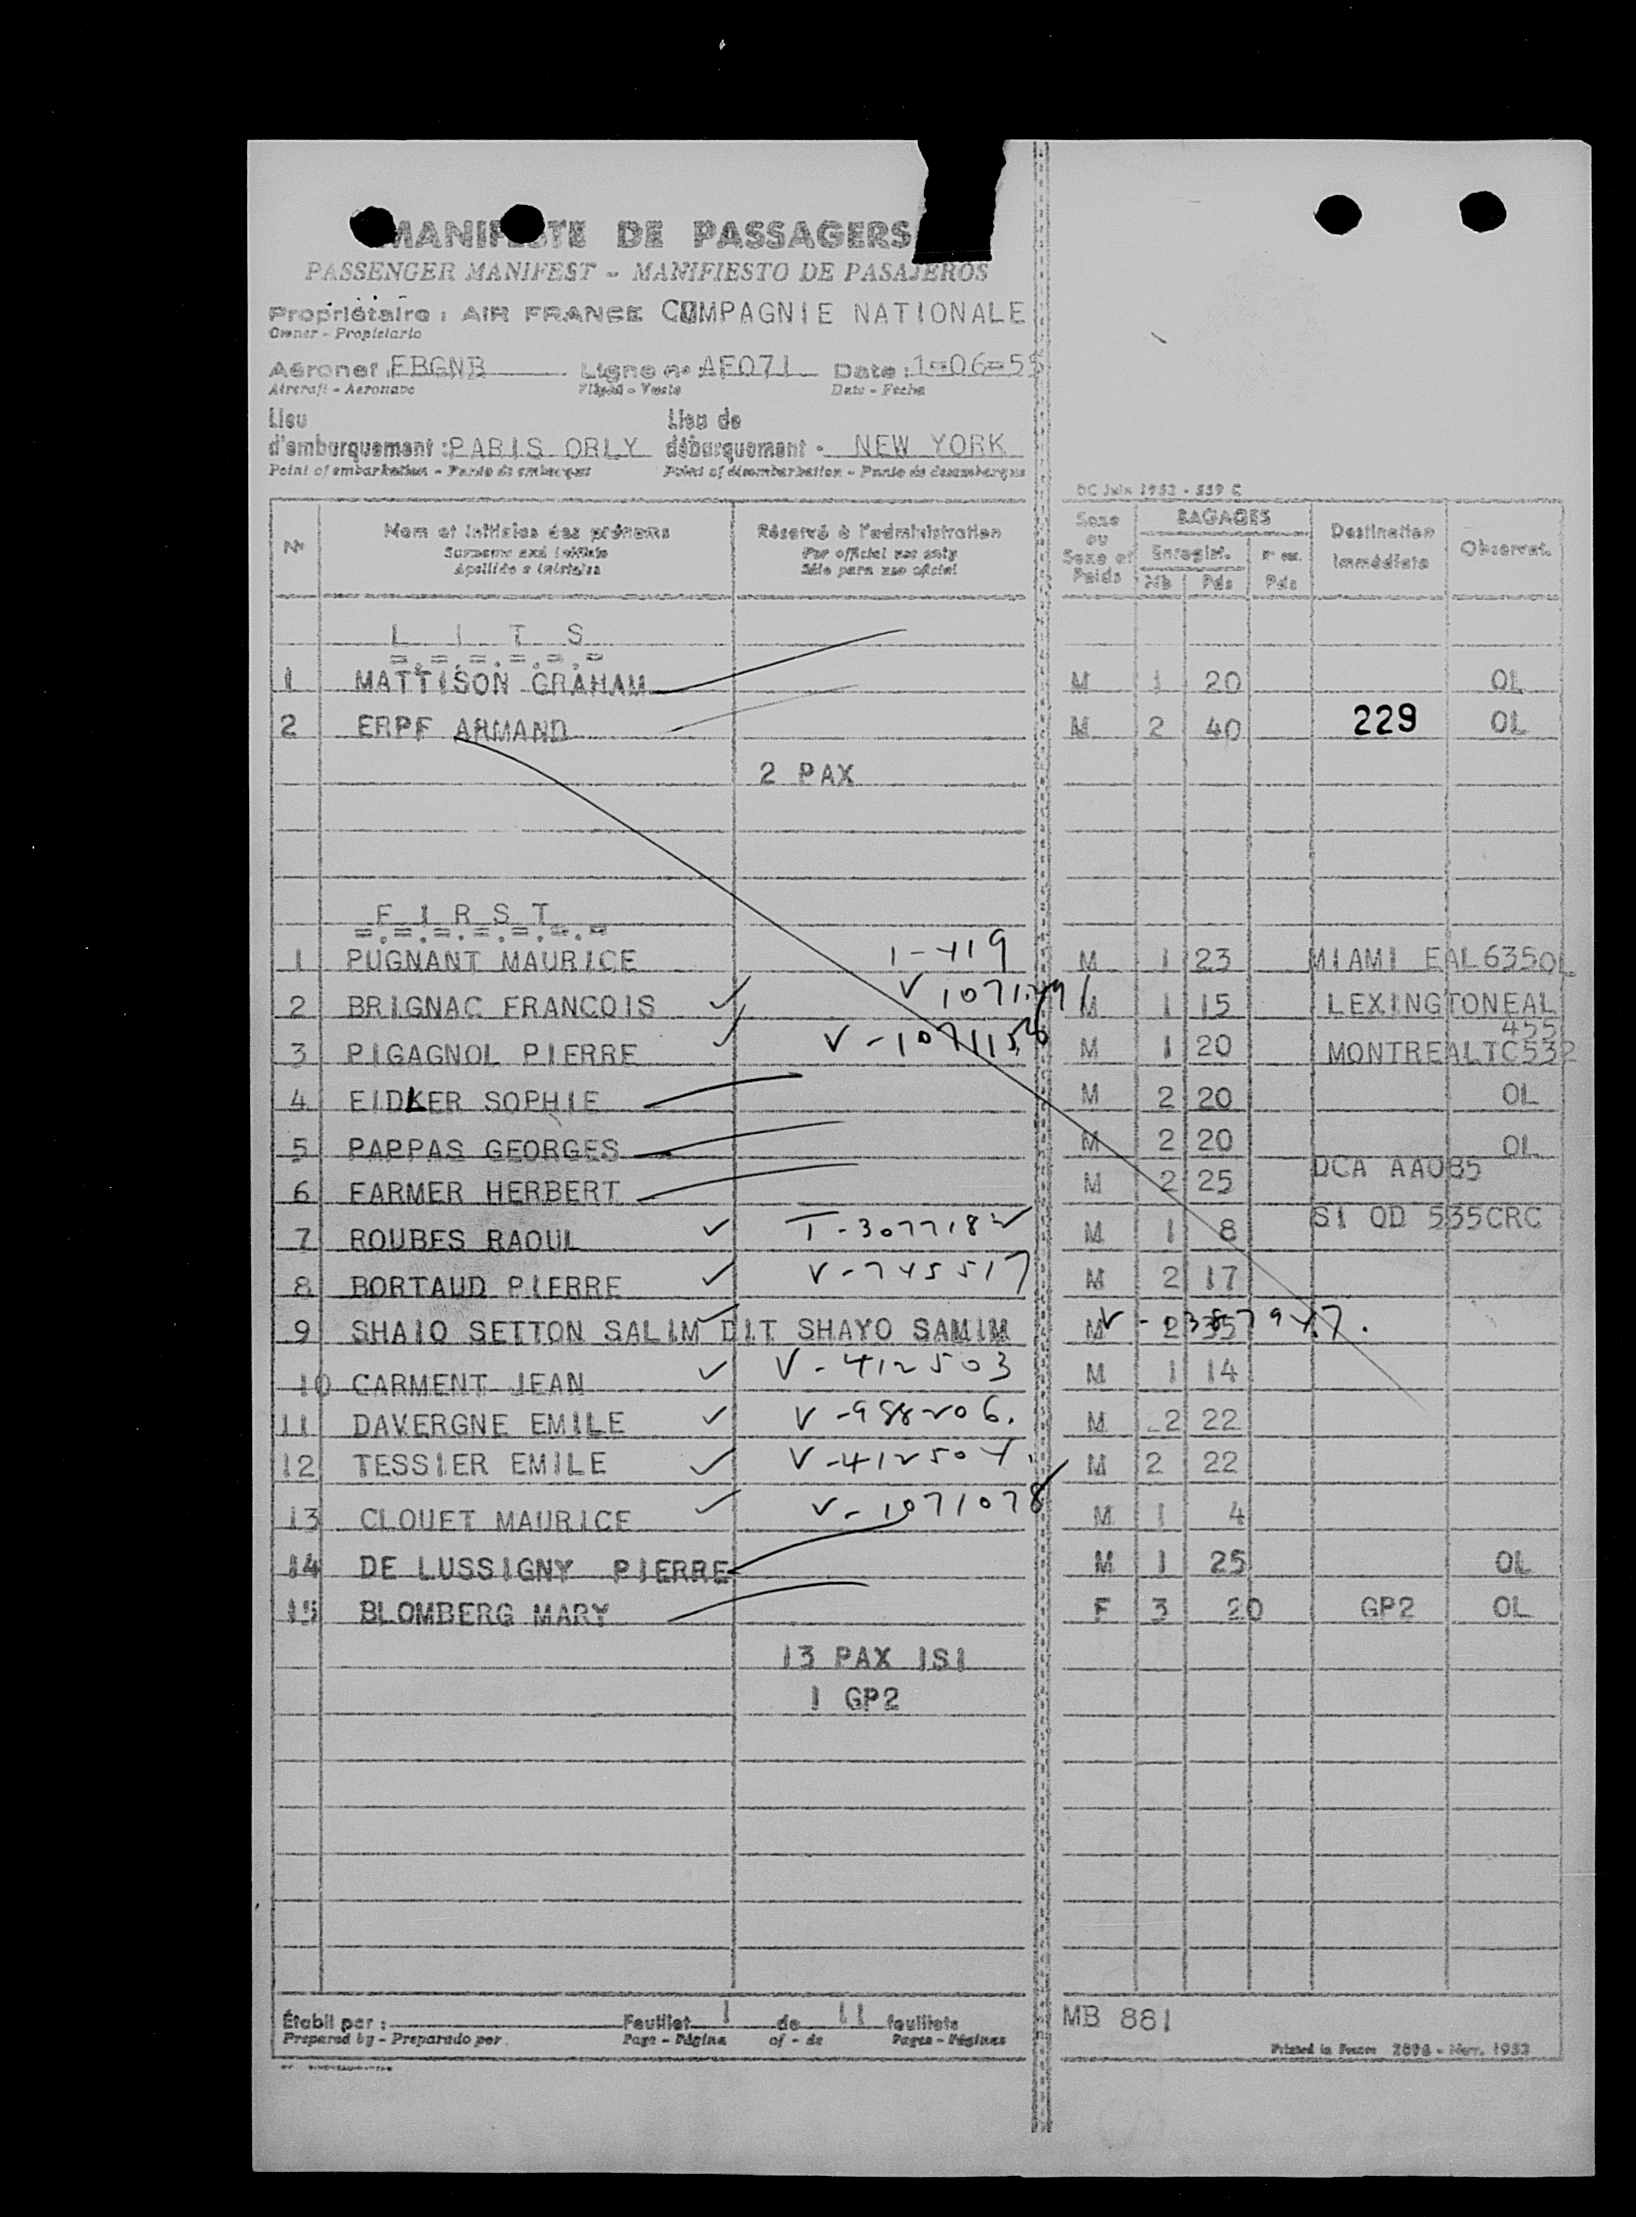 MANIFESTE DE PASSAGERS
PASSENGER MANIFEST - MANIFIESTO DE PASAJEROS
Propriétaire : AIR FRANCE COMPAGNIE NATIONALE
Owner - Propietario
Aéronef FBGNB Ligne n° AF071 Date : 1-06-55
Aircraft - Aeronave Date - Fecha
Lieu Lieu de
d'embarquement : PARIS ORLY débarquement - NEW YORK
Point of embarkation - Punto de embarque Point of disembarkation - Punto de desembarque
DC Juin 1952 - 559 C
N° Nom et initiales des prénoms Réservé à l'administration Sexe ou Sexe et Poids BAGAGES Destination immédiate Observat.
Surname and initials For official use only Enregist.
Apellido e iniciales Sólo para uso oficial Nb Pds Pds
L I T S
=.=.=.=.=.=
1 MATTISON GRAHAM M 1 20 OL
2 ERPF ARMAND M 2 40 229 OL
2 PAX
F I R S T
=.=.=.=.=.=.=
1 PUGNANT MAURICE 1-419 M 1 23 MIAMI EAL635OL
2 BRIGNAC FRANCOIS M 1 15 LEXINGTONEAL
455
3 PIGAGNOL PIERRE M 1 20 MONTREALTC532
4 EIDKER SOPHIE M 2 20 OL
5 PAPPAS GEORGES M 2 20 OL
6 FARMER HERBERT M 2 25 DCA AA085
7 ROUBES RAOUL T-307718 M 1 8 S1 OD 535CRC
8 BORTAUD PIERRE V-745517 M 2 17
9 SHAIO SETTON SALIM DIT SHAYO SAMIM M 2 35
10 CARMENT JEAN V-412503 M 1 14
11 DAVERGNE EMILE V-988206. M 2 22
12 TESSIER EMILE V-412504. M 2 22
13 CLOUET MAURICE V-1071078 M 1 4
14 DE LUSSIGNY PIERRE M 1 25 OL
15 BLOMBERG MARY F 3 20 GP2 OL
13 PAX 1S1
1 GP2
Établi par : Feuillet 1 de 11 feuillets MB 881
Prepared by - Preparado por Page - Página of - de Pages - Páginas
Printed in France 2898 - Nov. 1952